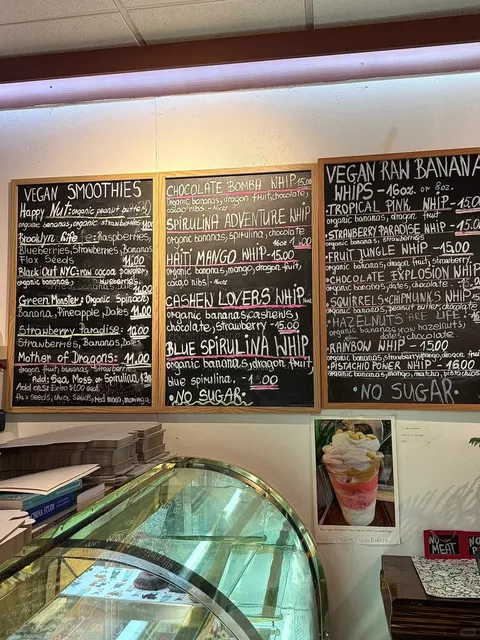 VEGAN SMOOTHIES
Happy Nut: organic peanut butter,
organic bananas, organic strawberries
Brooklyn Life: Raspberries,
Blueberries, Strawberries, Bananas,
Flax Seeds 11.00
Black Out NYC: raw cocoa powder,
organic bananas, blueberries 11.00
Green Monster: Organic Spinach,
Banana, Pineapple, Dates 11.00
Strawberry Paradise: 10.00
Strawberries, Bananas, Dates
Mother of Dragons: 11.00
dragon fruit, bananas, strawberries
Add: Sea Moss or Spirulina,
flax seeds, chia seeds,
CHOCOLATE BOMBA WHIP 15.00
organic bananas, dragon fruit, chocolate,
cacao nibs
SPIRULINA ADVENTURE WHIP
organic bananas, spirulina, chocolate
HAITI MANGO WHIP-15.00
organic bananas, mango, dragon fruit,
cacao nibs.
CASHEW LOVERS WHIP
organic bananas, cashews,
chocolate, strawberry -15.00
BLUE SPIRULINA WHIP
organic bananas, dragon fruit,
blue spirulina.
•NO SUGAR•
VEGAN RAW BANANA
WHIPS - 16oz. or 8oz.
•TROPICAL PINK WHIP-15.00
organic bananas, dragon fruit
•STRAWBERRY PARADISE WHIP-
organic bananas, strawberries
•FRUIT JUNGLE WHIP-15.00
organic bananas, dragon fruit,
•CHOCOLATE EXPLOSION WHIP
organic bananas, dates, chocolate
•SQUIRRELS&CHIPMUNKS WHIP
organic bananas, peanut butter, chocolate
•HAZELNUTS ARE LIFE
organic bananas, raw hazelnuts,
dates, chocolate
•RAINBOW WHIP - 15.00
organic bananas, strawberry, mango, dragon fruit
•PISTACHIO POWER WHIP - 16.00
organic bananas, mango, matcha, pistachios
•NO SUGAR•
CHINA STUDY
Vegan Bakery
NO
MEAT
NO